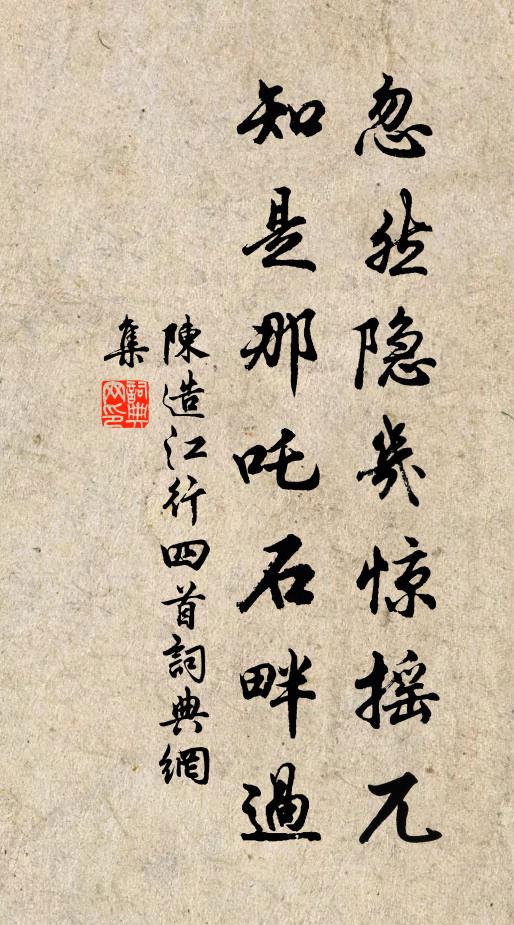 忽然隐几惊摇兀
知是那吒石畔過
陳造江行四首詞典網
集
詞典
网印